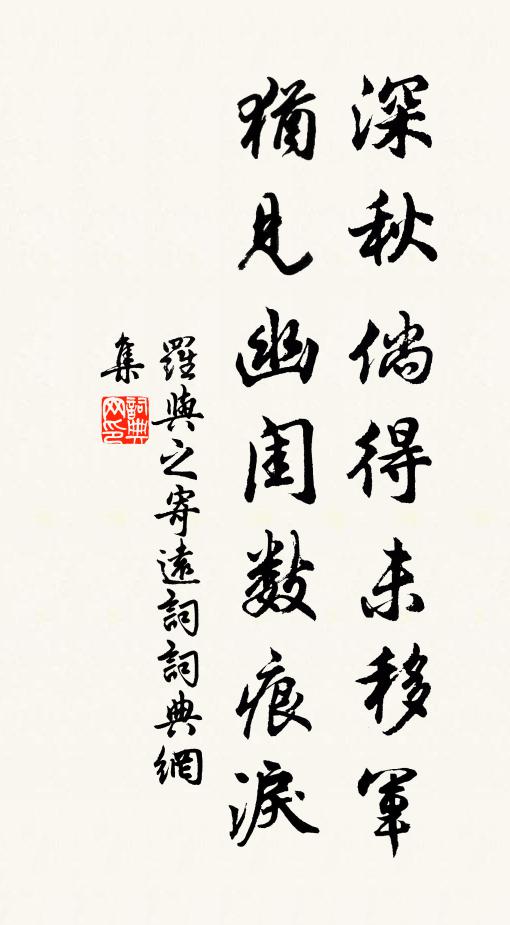 深秋倘得未移軍
猶見幽閨数痕淚
羅與之寄遠詞詞典網
集
詞典
网印